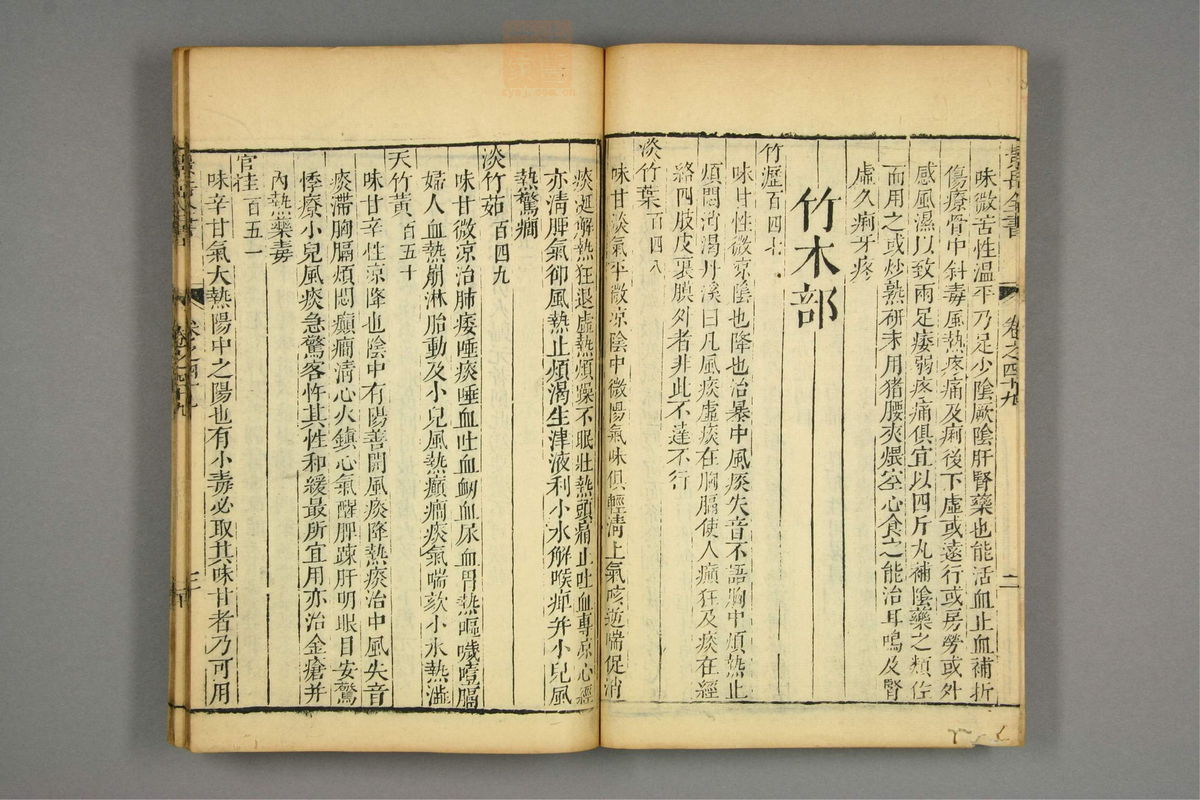 景岳全書
卷之四十九
二
味微苦性溫平乃足少陰厥陰肝腎藥也能活血止血補折
傷療骨中斜毒風熱疼痛及痢後下虛或遠行或房勞或外
感風濕以致兩足痿弱疼痛俱宜以四斤丸補陰藥之類佐
而用之或炒熟研末用猪腰夾煨空心食之能治耳鳴及腎
虛久痢牙疼
竹木部
竹瀝百四七
味甘性微凉陰也降也治暴中風痰失音不語胸中煩熱止
煩悶消渴丹溪曰凡風痰虛痰在胸膈使人癲狂及痰在經
絡四肢皮裏膜外者非此不達不行
淡竹葉百四八
味甘淡氣平微凉陰中微陽氣味俱輕清上氣咳逆喘促消
痰涎解熱狂退虛熱煩躁不眠壯熱頭痛止吐血專凉心經
亦清脾氣卻風熱止煩渴生津液利小水解喉痺并小兒風
熱驚癎
淡竹茹百四九
味甘微凉治肺痿唾痰唾血吐血衂血尿血胃熱嘔噦噎膈
婦人血熱崩淋胎動及小兒風熱癲癎痰氣喘欬小水熱澁
天竹黃百五十
味甘辛性凉降也陰中有陽善開風痰降熱痰治中風失音
痰滯胸膈煩悶癲癎清心火鎮心氣醒脾踈肝明眼目安驚
悸療小兒風痰急驚客忤其性和緩最所宜用亦治金瘡并
內熱藥毒
官桂百五一
味辛甘氣大熱陽中之陽也有小毒必取其味甘者乃可用
卷之四十九
三